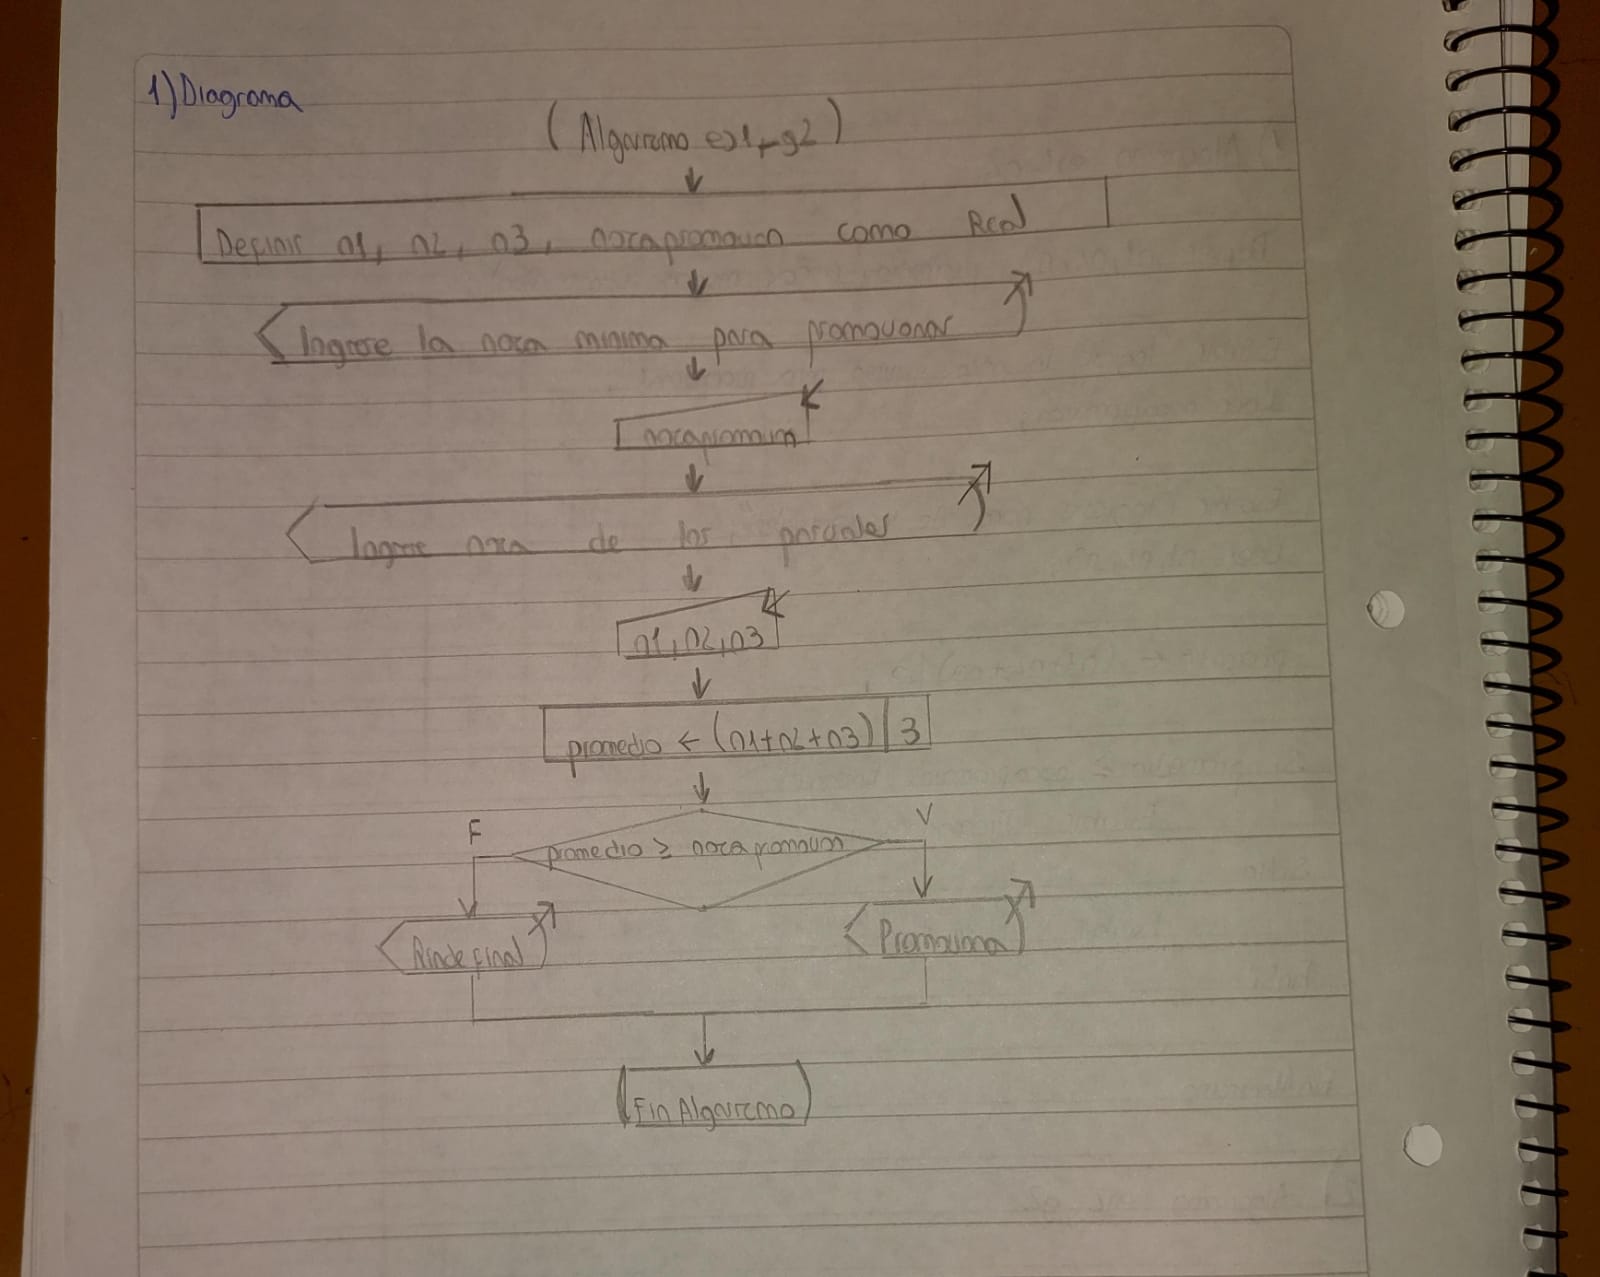 1) Diagrama
(Algoritmo ej1_g2)
Definir n1, n2, n3, notapromocion como Real
Ingrese la nota minima para promocionar
notapromocion
Ingrese nota de los parciales
n1, n2, n3
promedio ← (n1+n2+n3) / 3
F V
promedio ≥ notapromocion
Rinde final Promociona
Fin Algoritmo